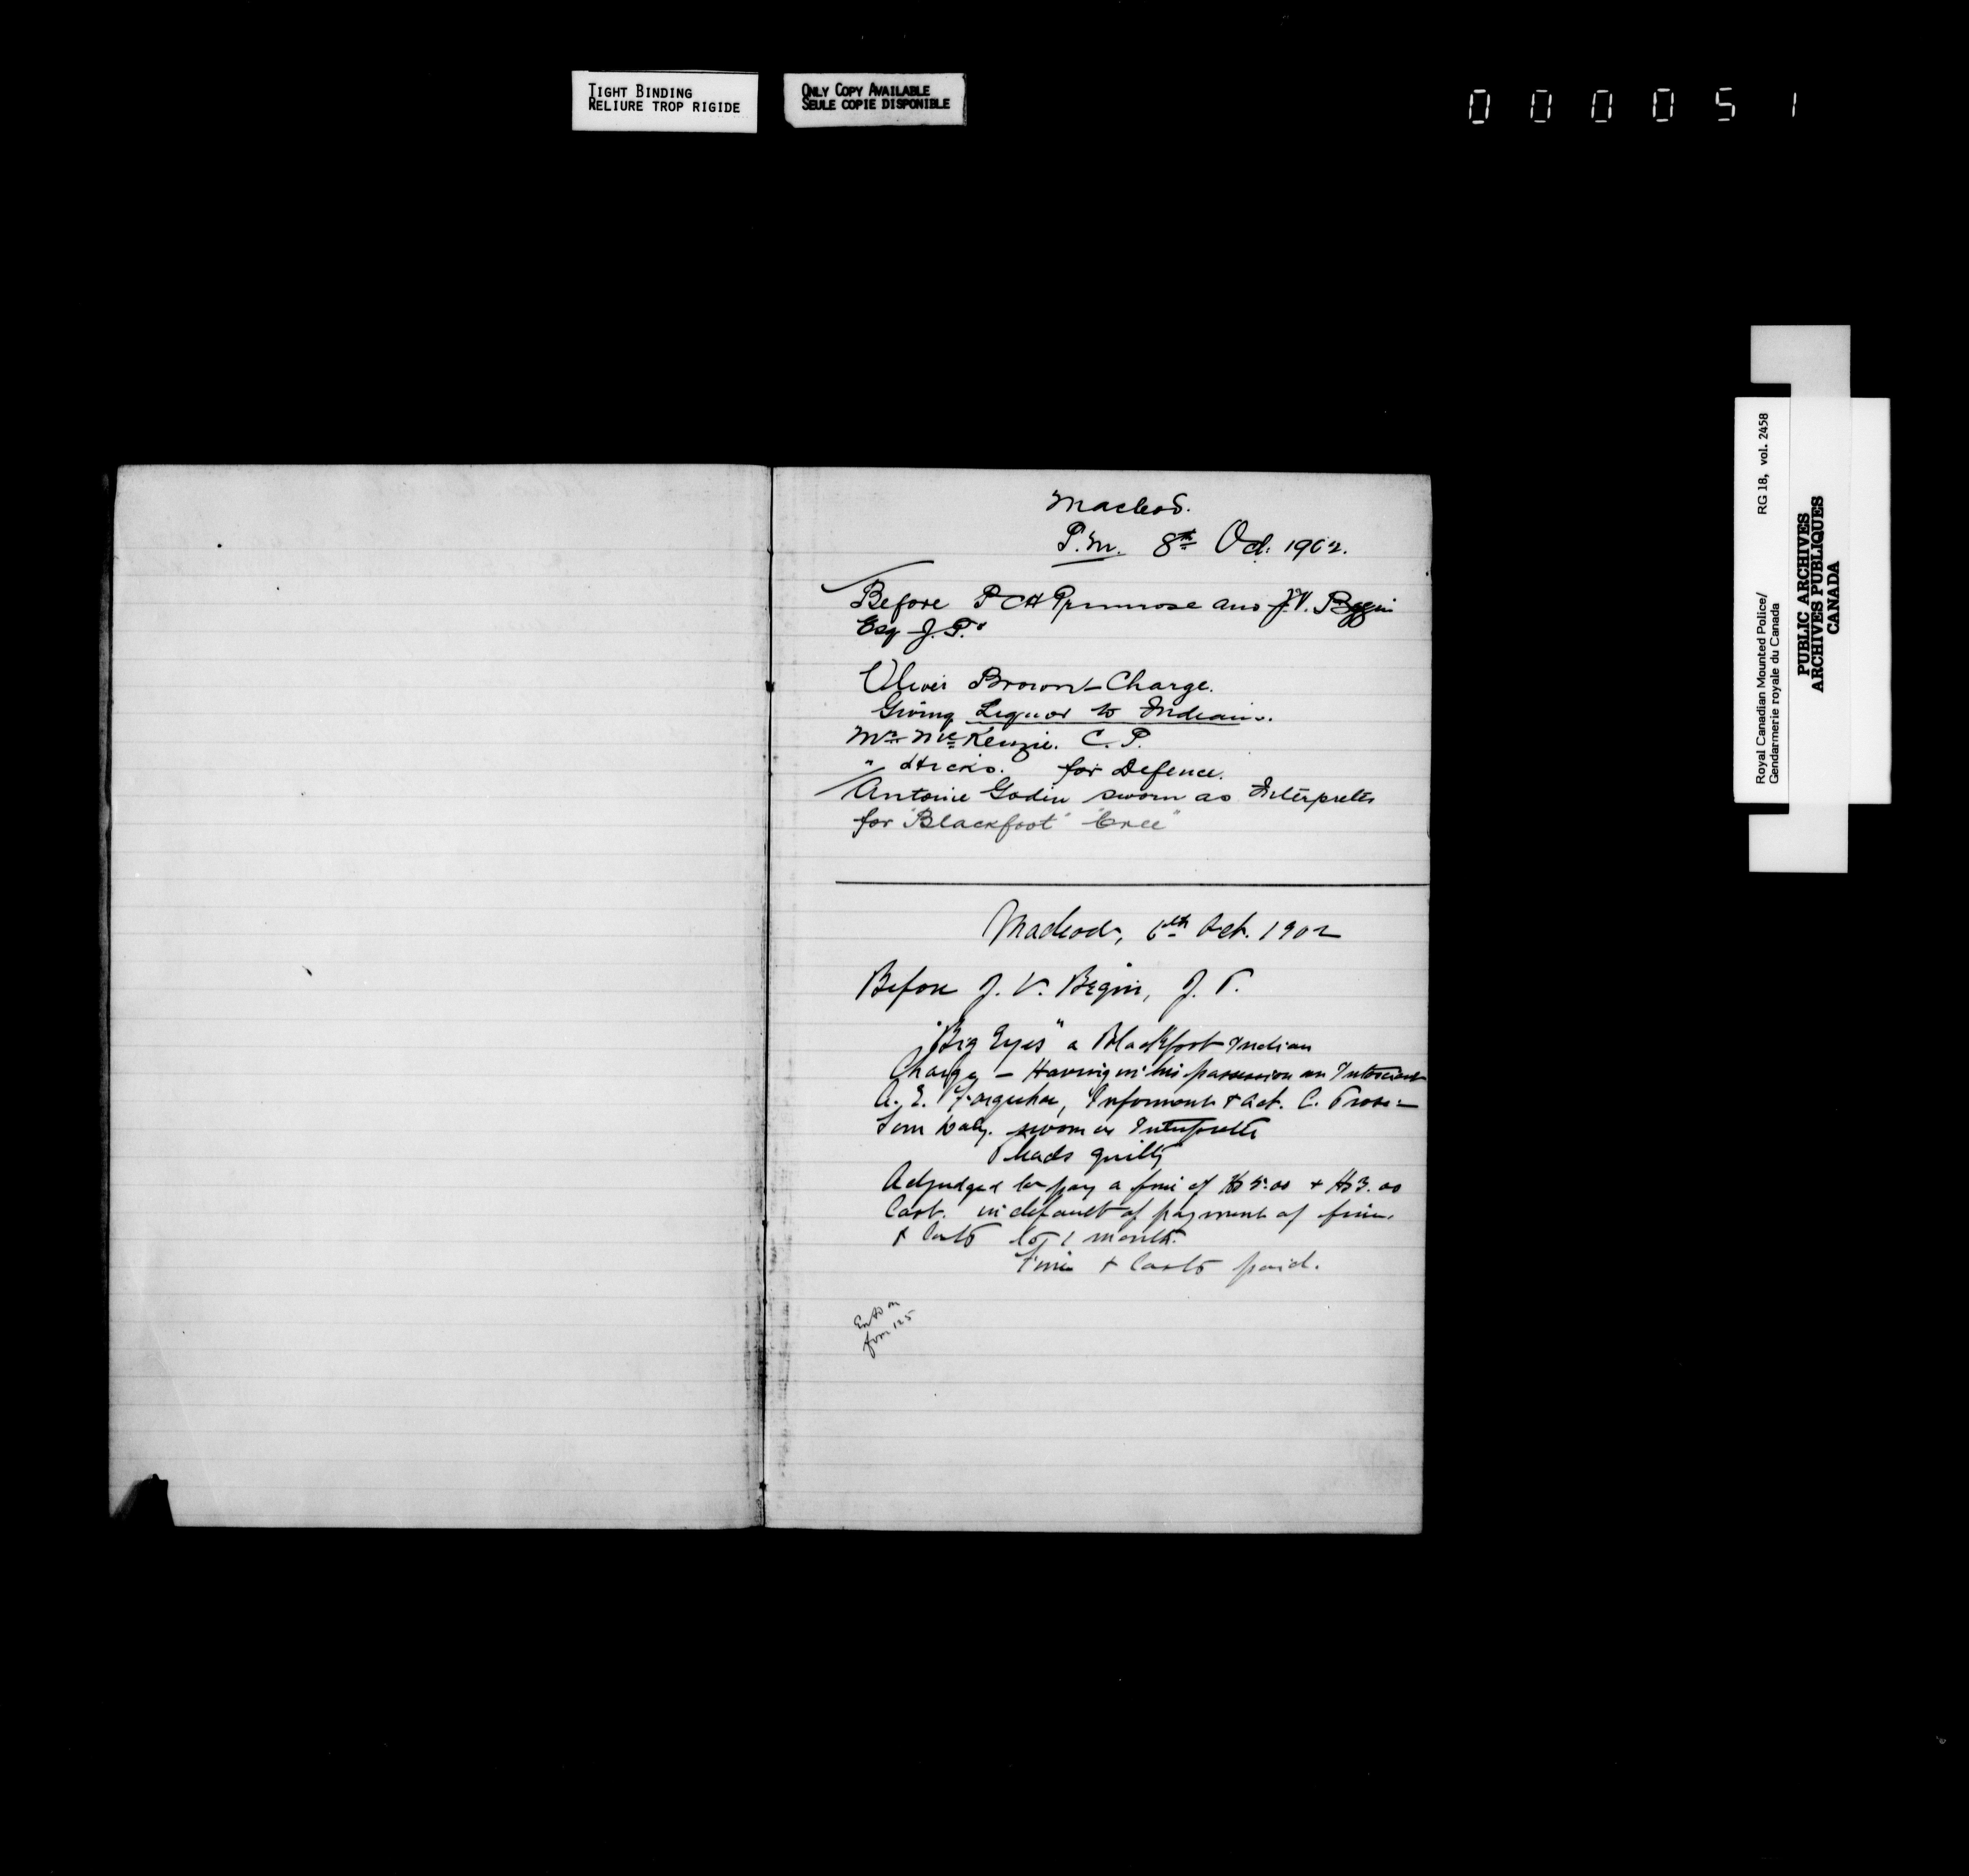 TIGHT BINDING
RELIURE TROP RIGIDE
ONLY COPY AVAILABLE
SEULE COPIE DISPONIBLE
0 0 0 0 5 1
Macleod.
P.M. 8th Oct. 1902.
Before P C H Primrose and J.V. Begin
Esq J.P.s
Oliver Brown - Charge.
Giving Liquor to Indians.
Mr. McKenzie. C. P.
" Hicks. for Defence.
Antoine Godin sworn as Interpreter
for "Blackfoot" "Cree"
Macleod, 6th Oct. 1902
Before J. V. Begin, J. P.
"Big Eyes" a Blackfoot Indian
Charge - Having in his possession an Intoxicant
A. E. Farquhar, Informant & act. C. Pros-
sworn as Interpreter
Pleads guilty
Adjudged to pay a fine of $5.00 & $3.00
Cost. in default of payment of fine
& Costs to 1 month.
Fine & Costs paid.
Royal Canadian Mounted Police/
Gendarmerie royale du Canada
RG 18, vol. 2458
PUBLIC ARCHIVES
ARCHIVES PUBLIQUES
CANADA